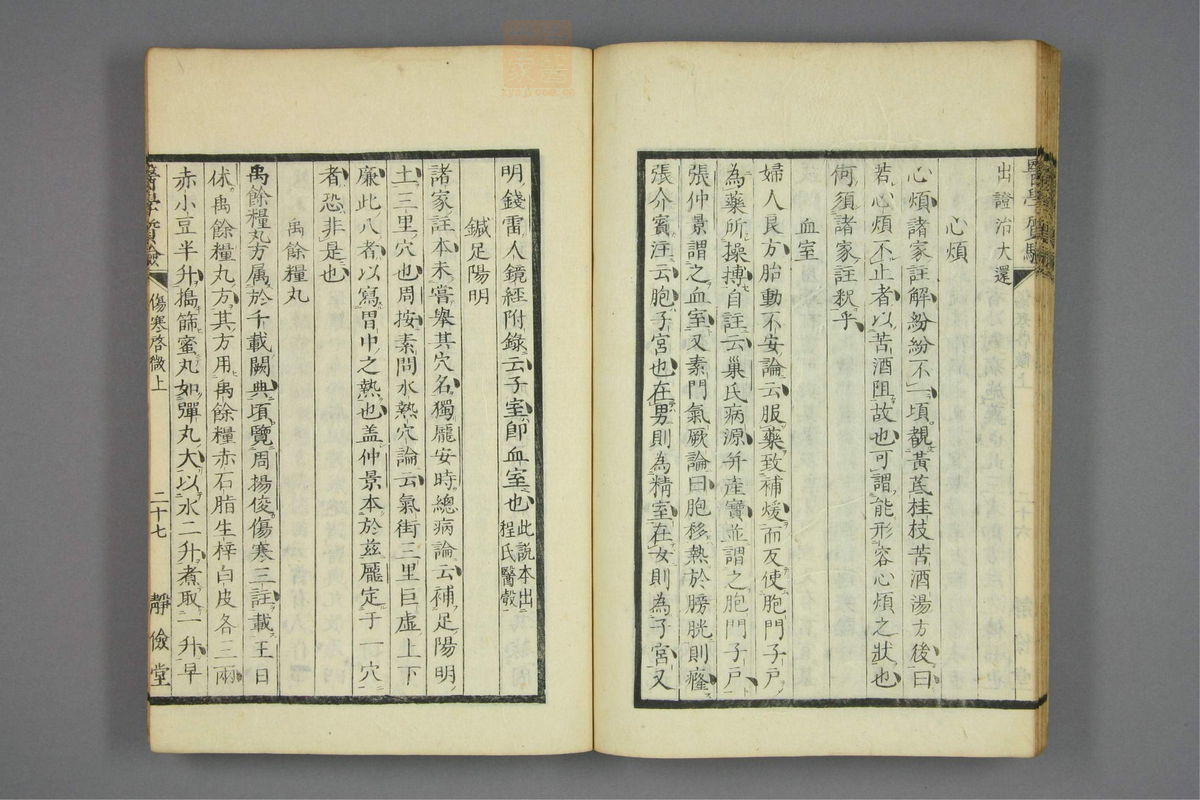 出證治大還
心煩
心煩諸家註解紛紛不一頃覩黃芪桂枝苦酒湯方後曰
若心煩不止者以苦酒阻故也可謂能形容心煩之狀也
何須諸家註釋乎
血室
婦人良方胎動不安論云服藥致補煖而反使胞門子戶
為藥所操搏自註云巢氏病源并產寶並謂之胞門子戶
張仲景謂之血室又素門氣厥論曰胞移熱於膀胱則癃
張介賓注云胞子宮也在男則為精室在女則為子宮又
明錢雷人鏡經附錄云子室即血室也此說本出
程氏醫彀
鍼足陽明
諸家註本未嘗舉其穴名獨龐安時總病論云補足陽明
土三里穴也周按素問水熱穴論云氣街三里巨虛上下
廉此八者以寫胃中之熱也蓋仲景本於茲龐定于一穴
者恐非是也
禹餘糧丸
禹餘糧丸方属於千載闕典頃覽周揚俊傷寒三註載王日
休禹餘糧丸方其方用禹餘糧赤石脂生梓白皮各三兩
赤小豆半升搗篩蜜丸如彈丸大以水二升煮取一升早
傷寒啓微上
二十七
靜儉堂